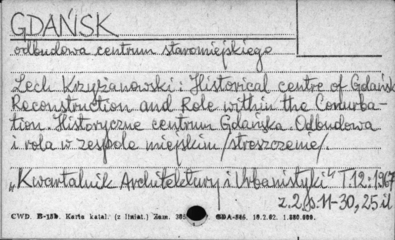 GDAŃSK
odbudowa centrum staromiejskiego
Lech Krzyżanowski: Historical centre of Gdańsk
Reconstruction and Role within the Conurba-
tion. Historyczne centrum Gdańska. Odbudowa
i rola w zespole miejskim /streszczenie/.
„Kwartalnik Architektury i Urbanistyki" T.12:1967
z.2, s.11-30, 25 il
CWD. B-15b. Karta katal. (z liniat.) Zam. GDA-886. 10.2.62. 1.500.000.